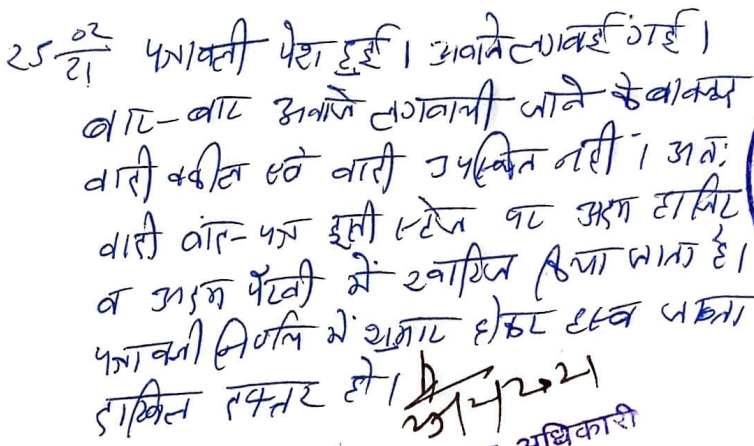 25 02/21 पत्रावली पेश हुई। अवाजे लगवाई गई।
बार-बार अवाजे लगवायी जाने के बावजूद
वादी वकील एवं वादी उपस्थित नहीं। अतः
वादी वाद-पत्र इसी स्टेज पर अदम हाजिर
व अदम पैरवी में खारिज किया जाता है।
पत्रावली निर्णित में शुमार होकर हस्ब जाब्ता
दाखिल दफ्तर हो।
अधिकारी